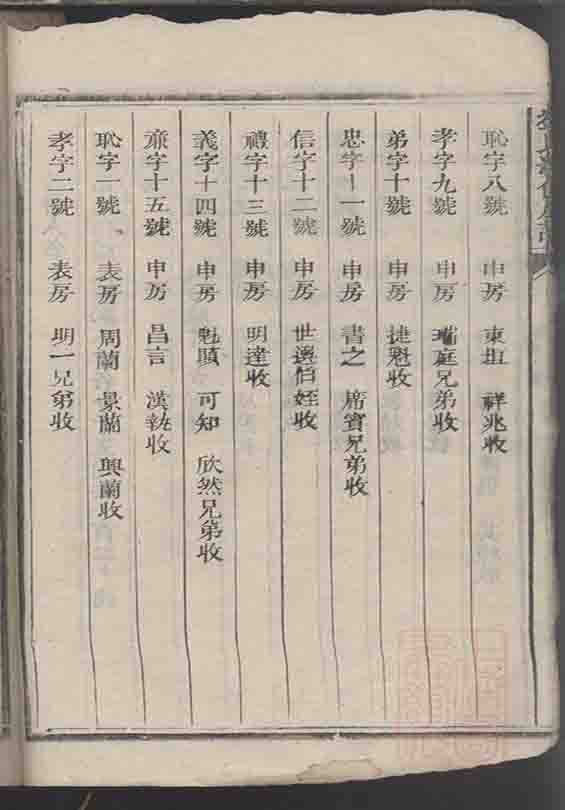 恥字八號 申房 東垣 祥兆收
孝字九號 申房 瑞庭兄弟收
弟字十號 申房 捷魁收
忠字十一號 申房 書之 席賓兄弟收
信字十二號 申房 世遴伯姪收
禮字十三號 申房 明達收
義字十四號 申房 魁頤 可知 欣然兄弟收
亷字十五號 申房 昌言 漢執收
恥字一號 表房 周蘭 景蘭 興蘭收
孝字二號 表房 明一兄弟收